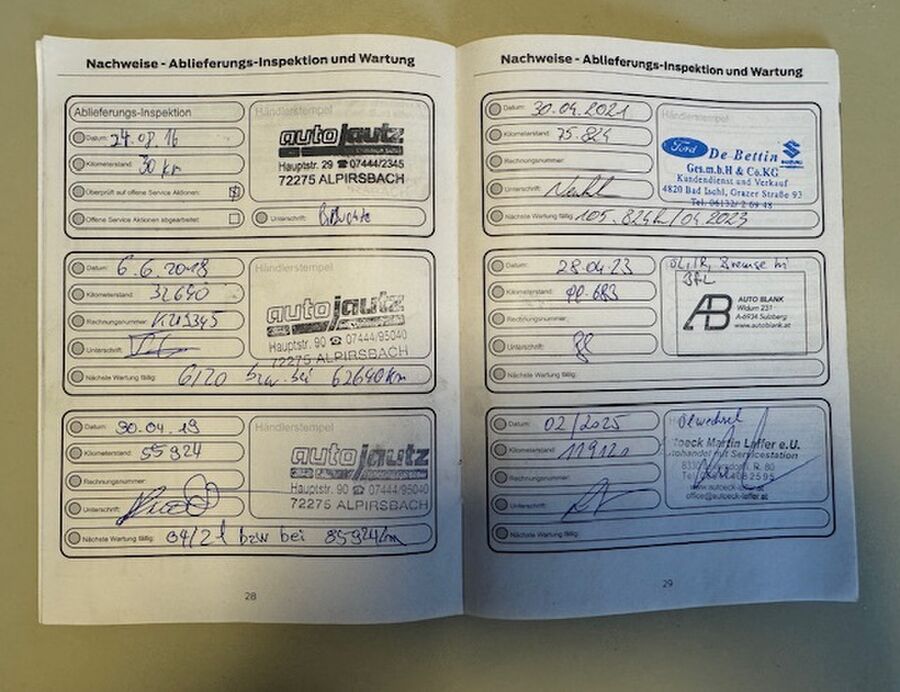 Nachweise - Ablieferungs-Inspektion und Wartung
Ablieferungs-Inspektion
Datum: 24.08.16
Kilometerstand: 30 km
Überprüft auf offene Service Aktionen:
Offene Service Aktionen abgearbeitet:
Händlerstempel
auto jautz
Hauptstr. 29 ☎ 07444/2345
72275 ALPIRSBACH
Unterschrift:
Datum: 6.6.2018
Kilometerstand: 32690
Rechnungsnummer:
Unterschrift:
Nächste Wartung fällig: 6/20 bzw. bei 62690 km
Händlerstempel
auto jautz
Hauptstr. 90 ☎ 07444/95040
72275 ALPIRSBACH
Datum: 30.04.19
Kilometerstand: 55924
Rechnungsnummer:
Unterschrift:
Nächste Wartung fällig: 04/21 bzw bei 85924 km
Händlerstempel
auto jautz
Hauptstr. 90 ☎ 07444/95040
72275 ALPIRSBACH
28
Nachweise - Ablieferungs-Inspektion und Wartung
Datum: 30.04.2021
Kilometerstand: 75.824
Rechnungsnummer:
Unterschrift:
Nächste Wartung fällig: 105.824 / 04.2023
Händlerstempel
Ford De Bettin SUZUKI
Ges.m.b.H & Co.KG
Kundendienst und Verkauf
4820 Bad Ischl, Grazer Straße 93
Tel. 06132/2 69 48
Datum: 28.04.23
Kilometerstand:
Rechnungsnummer:
Unterschrift:
Nächste Wartung fällig:
Händlerstempel
Bremse hi
BFL
AB AUTO BLANK
Widum 231
A-6934 Sulzberg
www.autoblank.at
Datum: 02/2025
Kilometerstand:
Rechnungsnummer:
Unterschrift:
Nächste Wartung fällig:
Ölwechsel
Martin Laffer e.U.
mit Servicestation
R. 80
office@autoeck-laffer.at
29